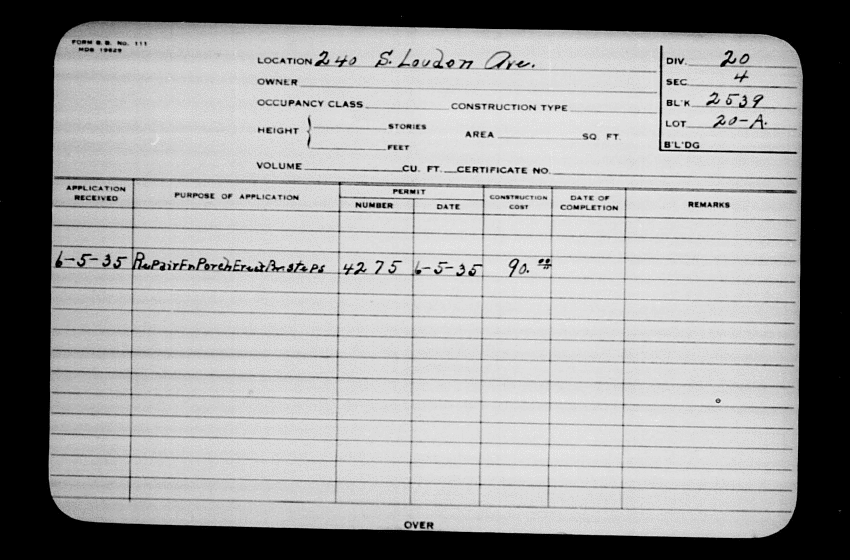 FORM B. B. No. 111
MDB 19829
LOCATION 240 S. Loudon Ave.
OWNER
OCCUPANCY CLASS CONSTRUCTION TYPE
HEIGHT } STORIES AREA SQ. FT.
FEET
VOLUME CU. FT. CERTIFICATE NO.
DIV. 20
SEC 4
BL'K 2539
LOT 20-A.
B'L'DG
APPLICATION RECEIVED PURPOSE OF APPLICATION PERMIT NUMBER DATE CONSTRUCTION COST DATE OF COMPLETION REMARKS
6-5-35 RepairFnPorchErectBnsteps 4275 6-5-35 90.00
OVER